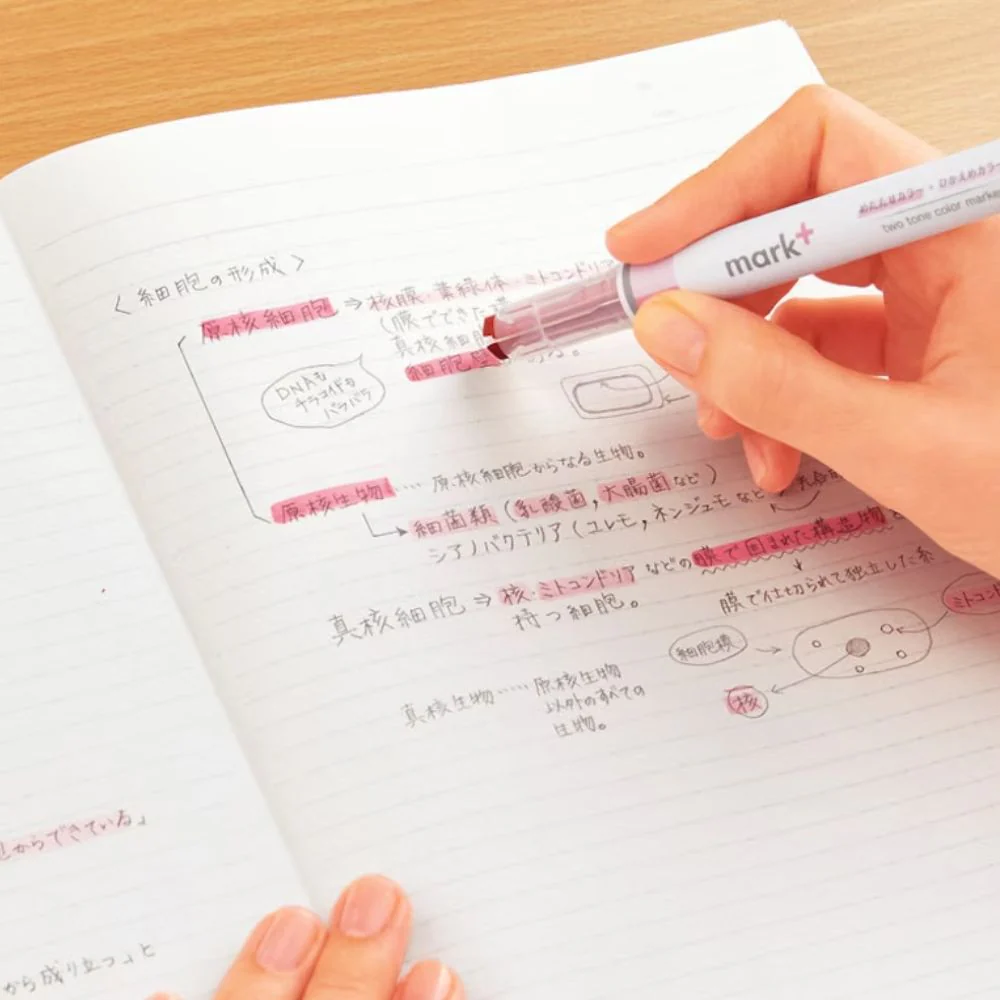 〈細胞の形成〉
原核細胞 ⇒ 核膜・葉緑体・ミトコンドリア
(膜でできた
真核細胞
細胞
DNAも
チラコイドも
バラバラ
原核生物 ‥‥ 原核細胞からなる生物。
→ 細菌類 (乳酸菌, 大腸菌など)
シアノバクテリア (ユレモ, ネンジュモなど
真核細胞 ⇒ 核・ミトコンドリア などの膜で囲まれた構造物を
持つ細胞。
膜で仕切られて独立した系
細胞膜
ミトコンド
核
真核生物 ‥‥‥ 原核生物
以外のすべての
生物。
からできている」
から成り立つ」と
mark+
めだたせカラー + ひかえめカラー
two tone color marker